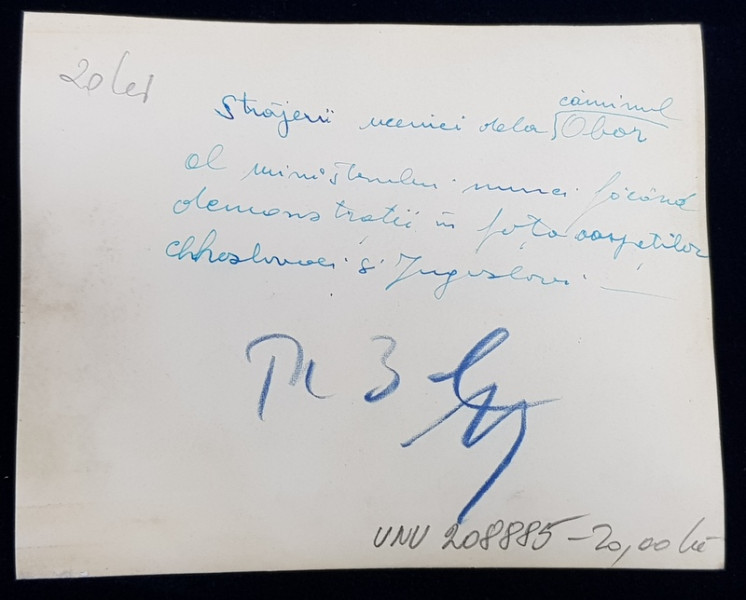 20 lei
căminul
Străjerii ucenici dela Obor
al ministerului muncii făcând
demonstrații în fața oaspeților
cehoslovaci și Jugoslavi —
3
UNU 208885 - 20,00 lei